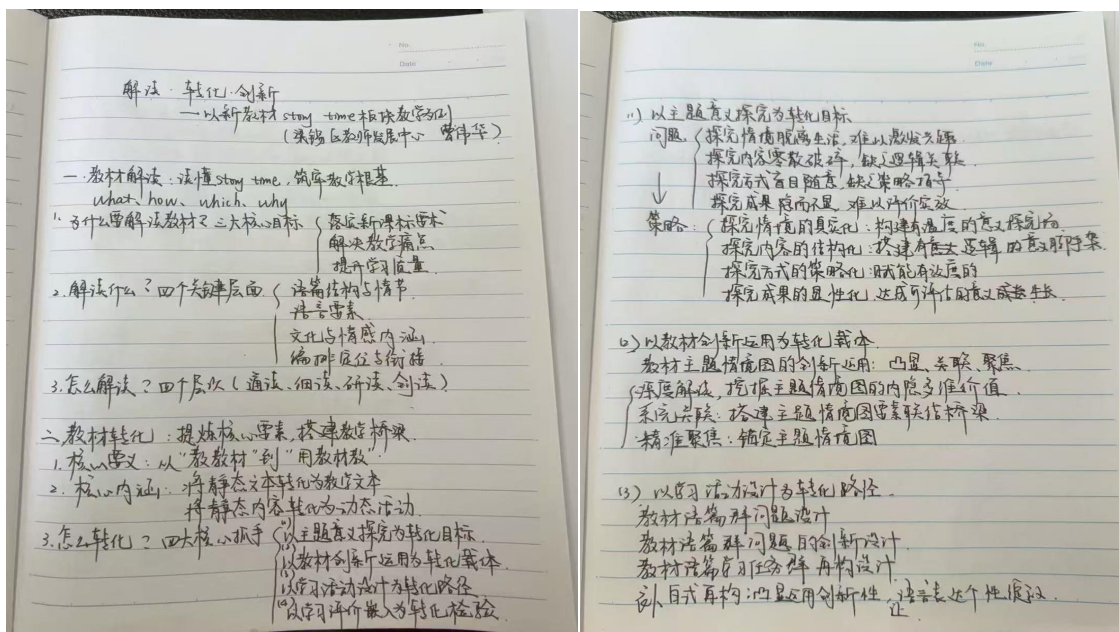 No.
Date
解读·转化·创新
——以新教材story time板块教学为例
(梁锡区教师发展中心 曹伟华)
一.教材解读:读懂story time,筑牢教学根基.
what、how、which、why
1.为什么要解读教材?三大核心目标
落实新课标要求
解决教学痛点
提升学习质量
2.解读什么?四个关键层面
语篇结构与情节
语言要素
文化与情感内涵
编排定位与衔接
3.怎么解读?四个层次(通读、细读、研读、创读)
二.教材转化:提炼核心要素,搭建教学桥梁.
1.核心要义:从"教教材"到"用教材教"
2.核心内涵:将静态文本转化为教学文本
将静态内容转化为动态活动
3.怎么转化?四大核心抓手
(1)以主题意义探究为转化目标
(2)以教材创新运用为转化载体
(3)以学习活动设计为转化路径
(4)以学习评价嵌入为转化检验
No.
Date
(1)以主题意义探究为转化目标
问题
探究情境脱离生活,难以激发兴趣
探究内容零散破碎,缺乏逻辑关联
探究方式盲目随意,缺乏策略指导
探究成果隐而不显,难以评价实效
策略:
探究情境的真实化:构建有温度的意义探究场
探究内容的结构化:搭建有意义逻辑的意义脚手架
探究方式的策略化:赋能有效度的
探究成果的显性化,达成可评估的意义成整生长
(2)以教材创新运用为转化载体
教材主题情境图的创新运用:凸显、关联、聚焦
深度解读,挖掘主题情境图的内隐多维价值
系统关联:搭建主题情境图要素联结桥梁
精准聚焦:锚定主题情境图
(3)以学习活动设计为转化路径
教材语篇群问题设计
教材语篇群问题的创新设计
教材语篇学习任务群再构设计
目式再构:凸显运用创新性,让语言表达个性